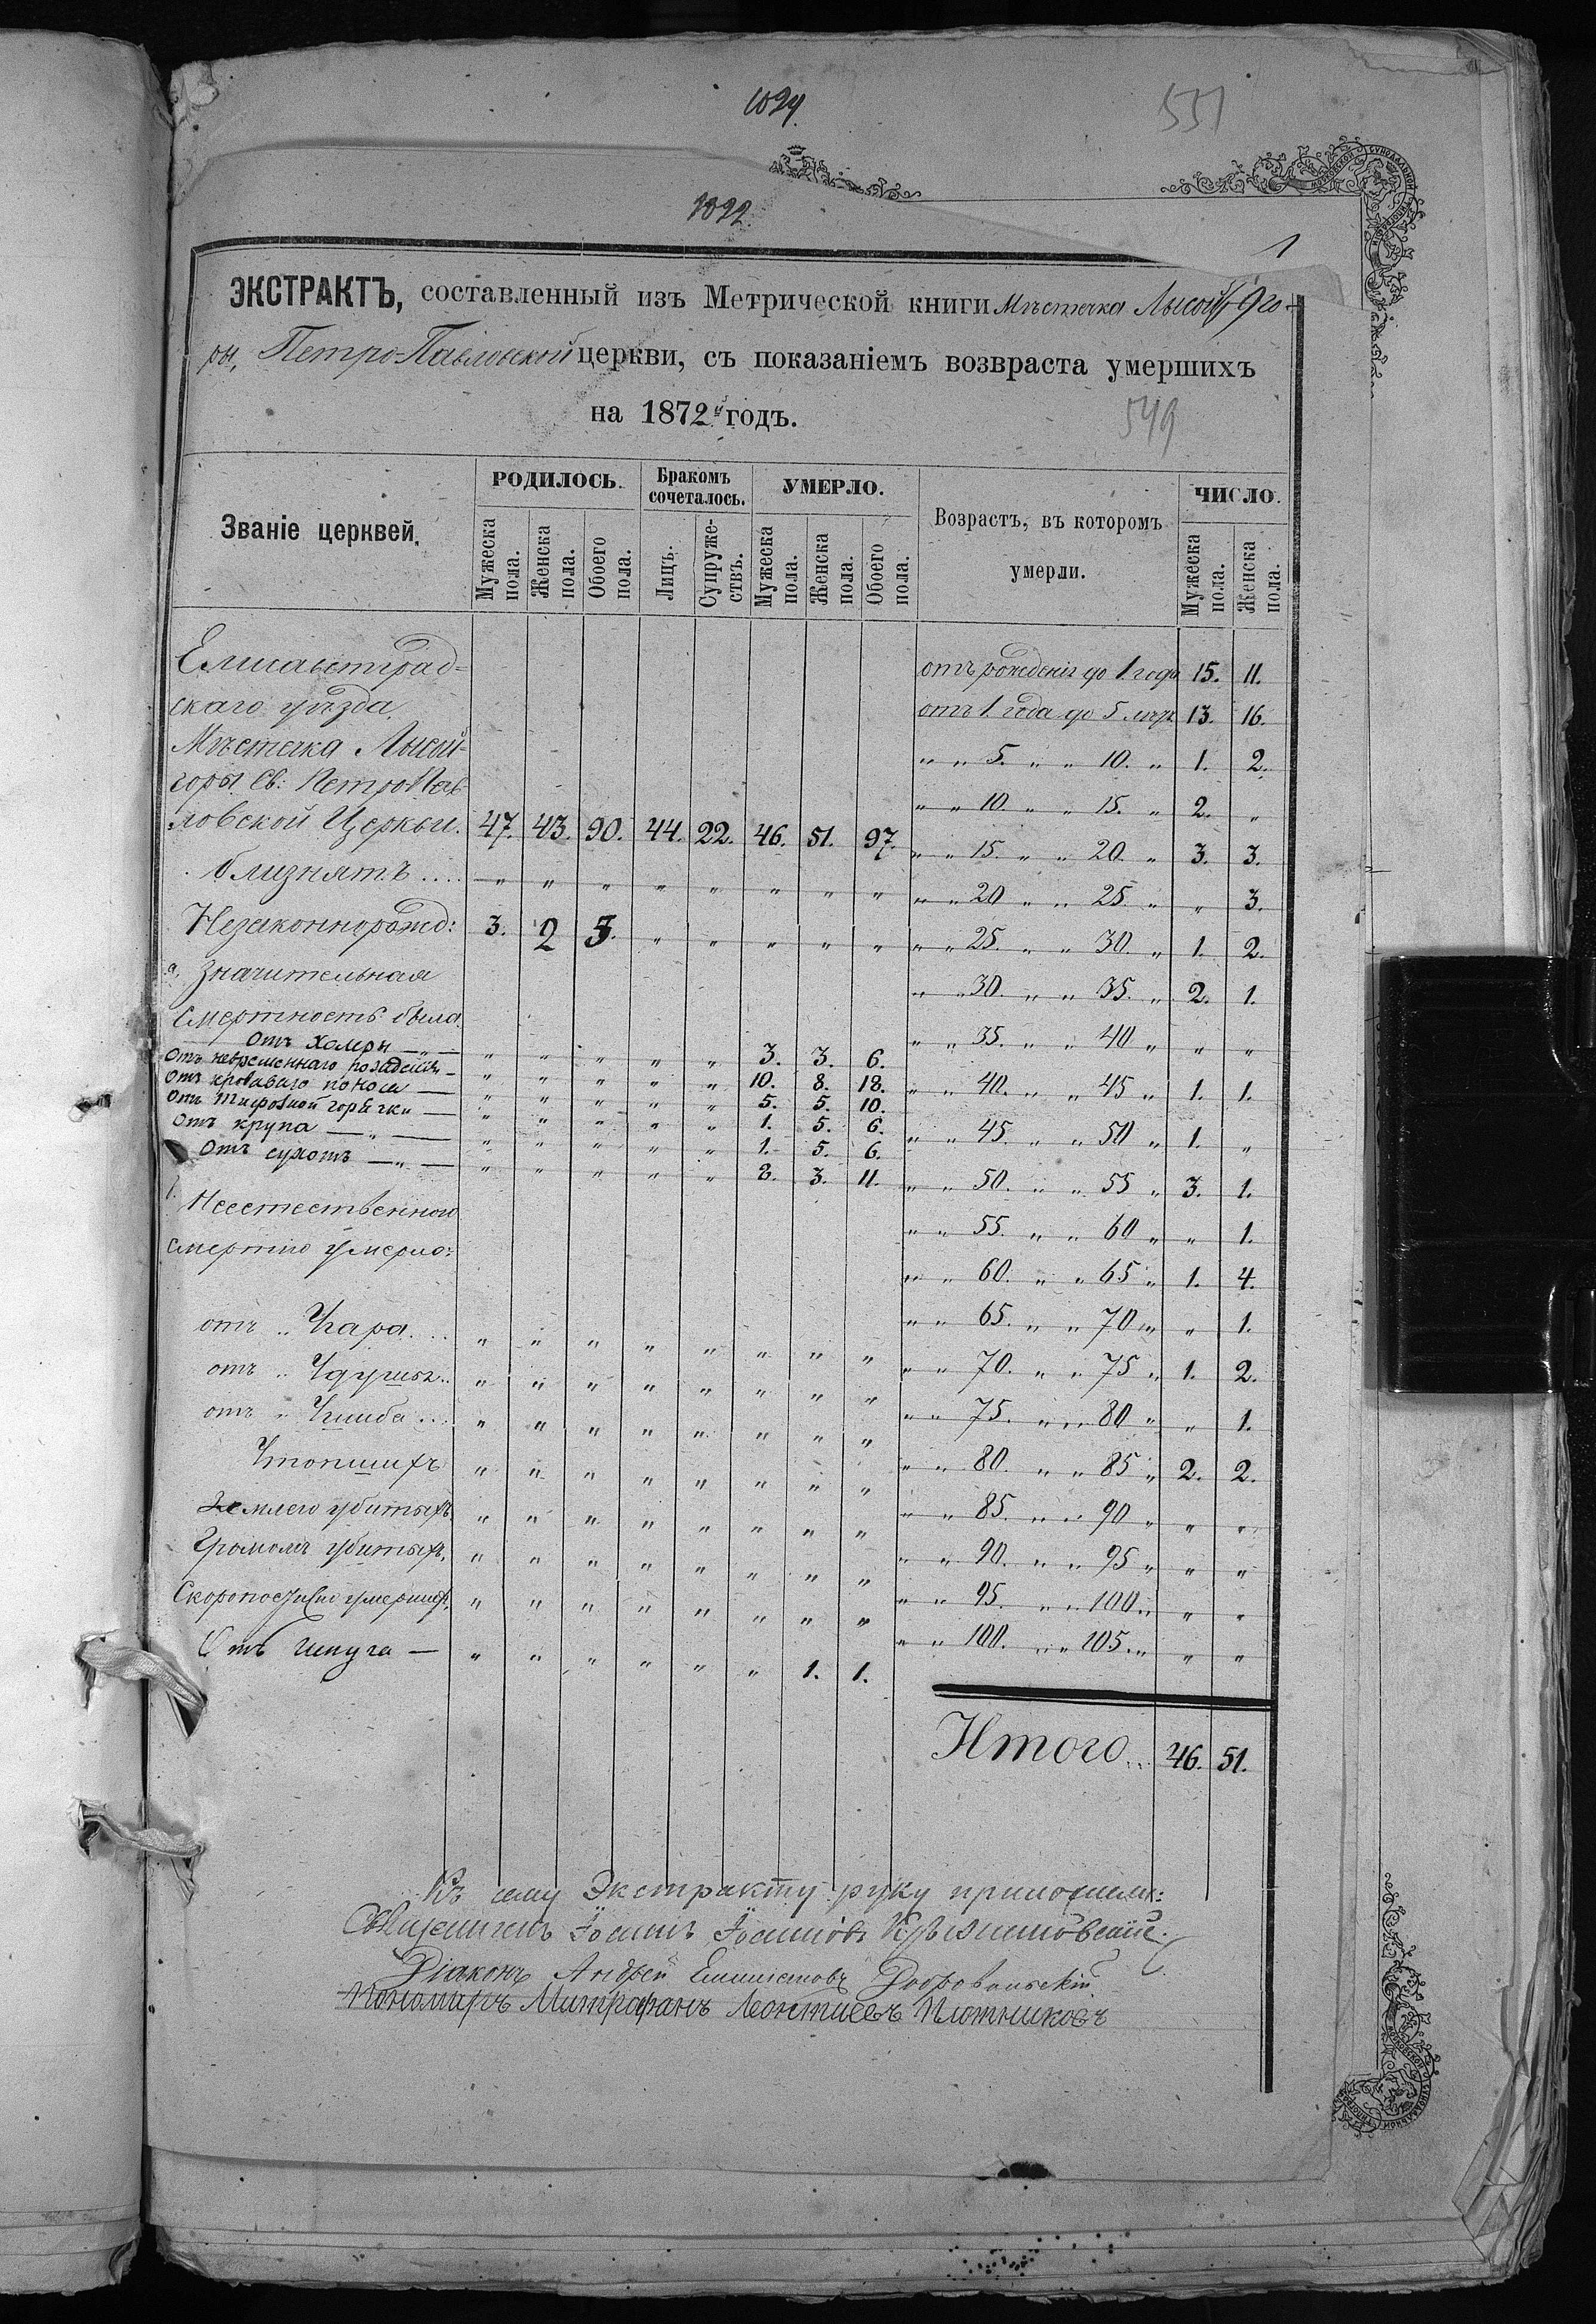 1094.
551
1092
1
ЭКСТРАКТЪ, составленный изъ Метрической книги Мѣстечка Лысой го-
ры, Петро-Павловской церкви, съ показаніемъ возвраста умершихъ
на 1872й годъ.
549
Званіе церквей. РОДИЛОСЬ. Бракомъ сочеталось. УМЕРЛО. Возрастъ, въ которомъ умерли. ЧИСЛО.
Мужеска пола. Женска пола. Обоего пола. Лицъ. Супружествъ. Мужеска пола. Женска пола. Обоего пола. Мужеска пола. Женска пола.
Елисаветград-
скаго уѣзда,
Мѣстечка Лысой-
горы Св: ПетроПав
ловской Церкви. 47. 43. 90. 44. 22. 46. 51. 97.
близнятъ .... „ „ „ „ „ „ „ „
Незаконнорожд: 3. 2 5. „ „ „ „ „
а, Значительная
смертность была.
Отъ холеры — „ — „ „ „ „ „ 3. 3. 6.
Отъ невременнаго рождения — „ „ „ „ „ 10. 8. 18.
Отъ кроваваго поноса — „ „ „ „ „ 5. 5. 10.
Отъ тифозной горячки — „ „ „ „ „ 1. 5. 6.
Отъ крупа — „ — „ „ „ „ „ 1. 5. 6.
Отъ сухотъ — „ — „ „ „ „ „ 8. 3. 11.
Неестественною
смертію умерло:
отъ „ Угара.... „ „ „ „ „ „ „ „
отъ „ „ „ „ „ „ „ „ „
отъ „ Ушиба ... „ „ „ „ „ „ „ „
Утопшихъ „ „ „ „ „ „ „ „
Землею убитыхъ „ „ „ „ „ „ „ „
Громомъ убитыхъ, „ „ „ „ „ „ „ „
Скоропостижно умершихъ, „ „ „ „ „ „ „ „
Отъ испуга — „ „ „ „ „ „ 1. 1.
отъ рожденія до 1. года 15. 11.
отъ 1. года до 5 лѣтъ 13. 16.
„ „ 5. „ „ 10. „ 1. 2.
„ „ 10. „ „ 15. „ 2. „
„ „ 15. „ „ 20. „ 3. 3.
„ „ 20 „ „ 25. „ „ 3.
„ „ 25. „ „ 30. „ 1. 2.
„ „ 30. „ „ 35. „ 2. 1.
„ „ 35. „ „ 40 „ „ „
„ „ 40. „ „ 45 „ 1. 1.
„ „ 45. „ „ 50 „ 1. „
„ „ 50. „ „ 55 „ 3. 1.
„ „ 55. „ „ 60 „ „ 1.
„ „ 60. „ „ 65 „ 1. 4.
„ „ 65. „ „ 70 „ „ 1.
„ „ 70. „ „ 75 „ 1. 2.
„ „ 75. „ „ 80 „ „ 1.
„ „ 80. „ „ 85 „ 2. 2.
„ „ 85. „ „ 90 „ „ „
„ „ 90. „ „ 95 „ „ „
„ „ 95. „ „ 100 „ „ „
„ „ 100. „ „ 105. „ „ „
Итого... 46. 51.
Къ сему Экстракту руку приложили:
Священникъ Іоаннъ Іоанновъ
Діаконъ Андрей Добровольскій
Пономарь Митрофанъ Леонтиевъ Плотниковъ